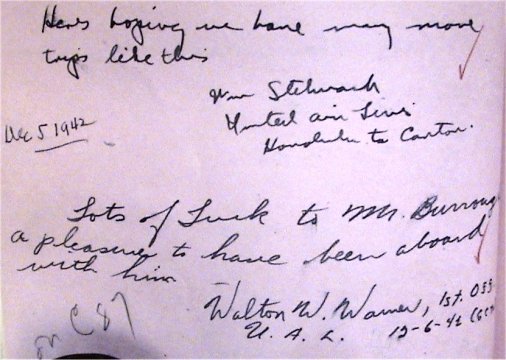 Heres hoping we have many more
trips like this
Wm
United Air Lines
Honolulu to Canton.
Dec 5 1942
Lots of Luck to Mr. Burroug
a pleasure to have been aboard
with him
Walton W. Warner, 1st. Off
U. A. L. 12-6-42
on C 87